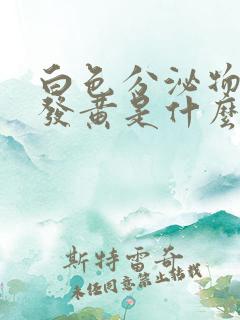 白色分泌物
發黃是什麼
斯特雷奇
未经同意禁止转载